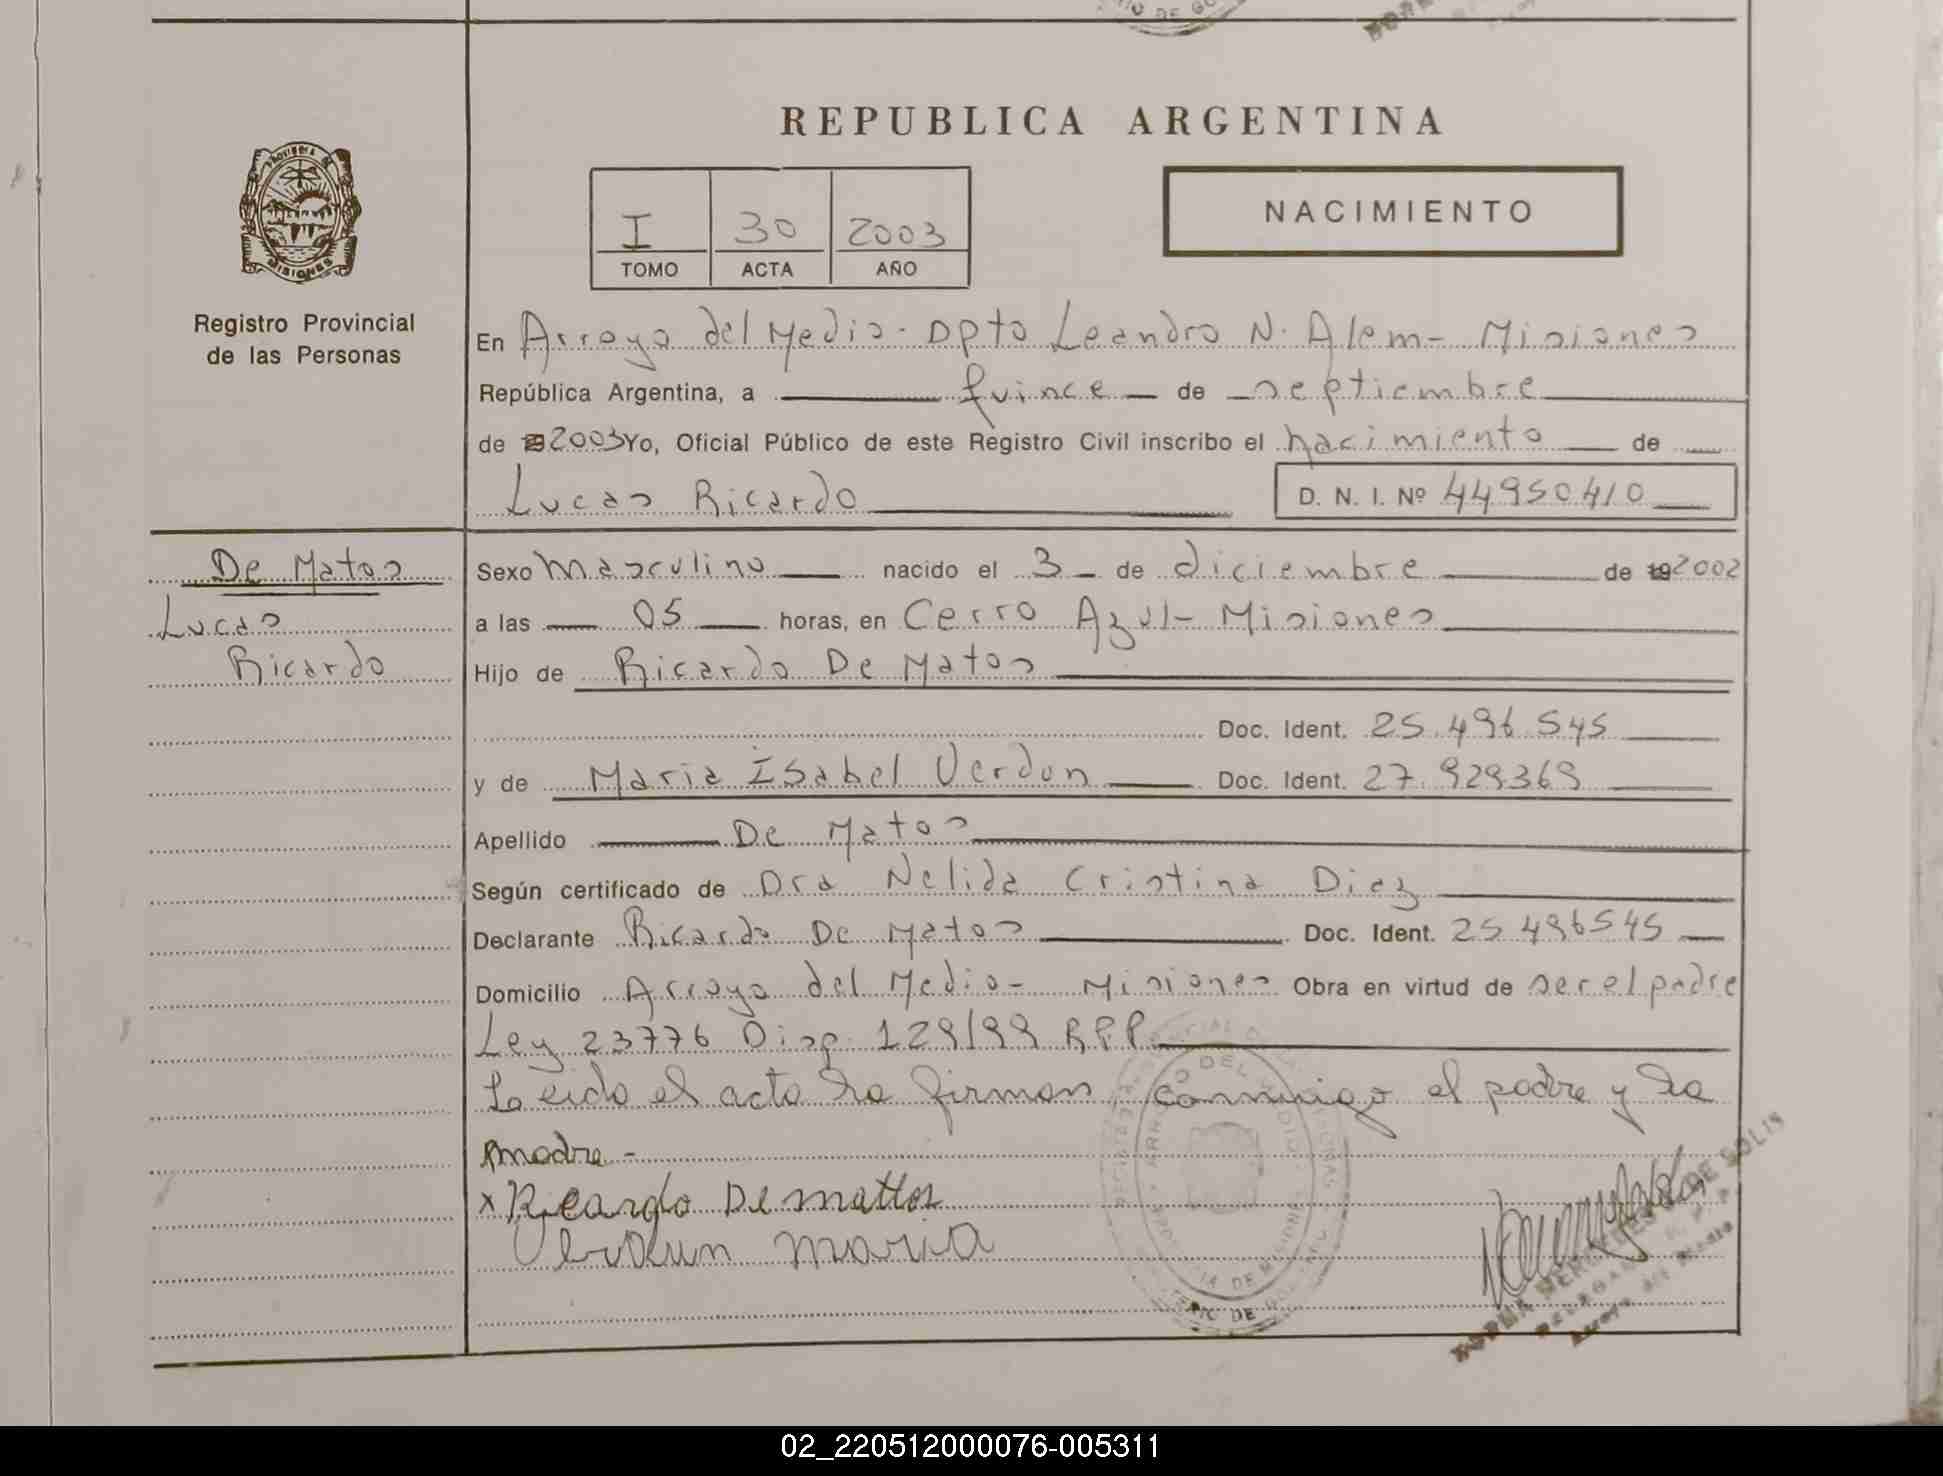 REPUBLICA ARGENTINA
PROVINCIA DE
MISIONES
Registro Provincial
de las Personas
I 30 2003
TOMO ACTA AÑO
NACIMIENTO
En Arroyo del Medio - Dpto Leandro N. Alem - Misiones
República Argentina, a quince de septiembre
de 2003 Yo, Oficial Público de este Registro Civil inscribo el nacimiento de
Lucas Ricardo D. N. I. Nº 44950410
De Matos
Lucas
Ricardo
Sexo Masculino nacido el 3 de diciembre de 192002
a las 05 horas, en Cerro Azul - Misiones
Hijo de Ricardo De Matos
Doc. Ident. 25.496.545
y de Maria Isabel Verdun Doc. Ident. 27.929369
Apellido De Matos
Según certificado de Dra Nelida Cristina Diez
Declarante Ricardo De Matos Doc. Ident. 25 496545
Domicilio Arroyo del Medio - Misiones Obra en virtud de ser el padre
Ley 23776 Disp. 129/99 RPP
Leida el acta la firman conmigo el padre y la
madre -
x Ricardo De mattos
Verdun maria
ARROYO DEL MEDIO
DE MISIONES
DE SOLIS
Arroyo del Medio
02_220512000076-005311